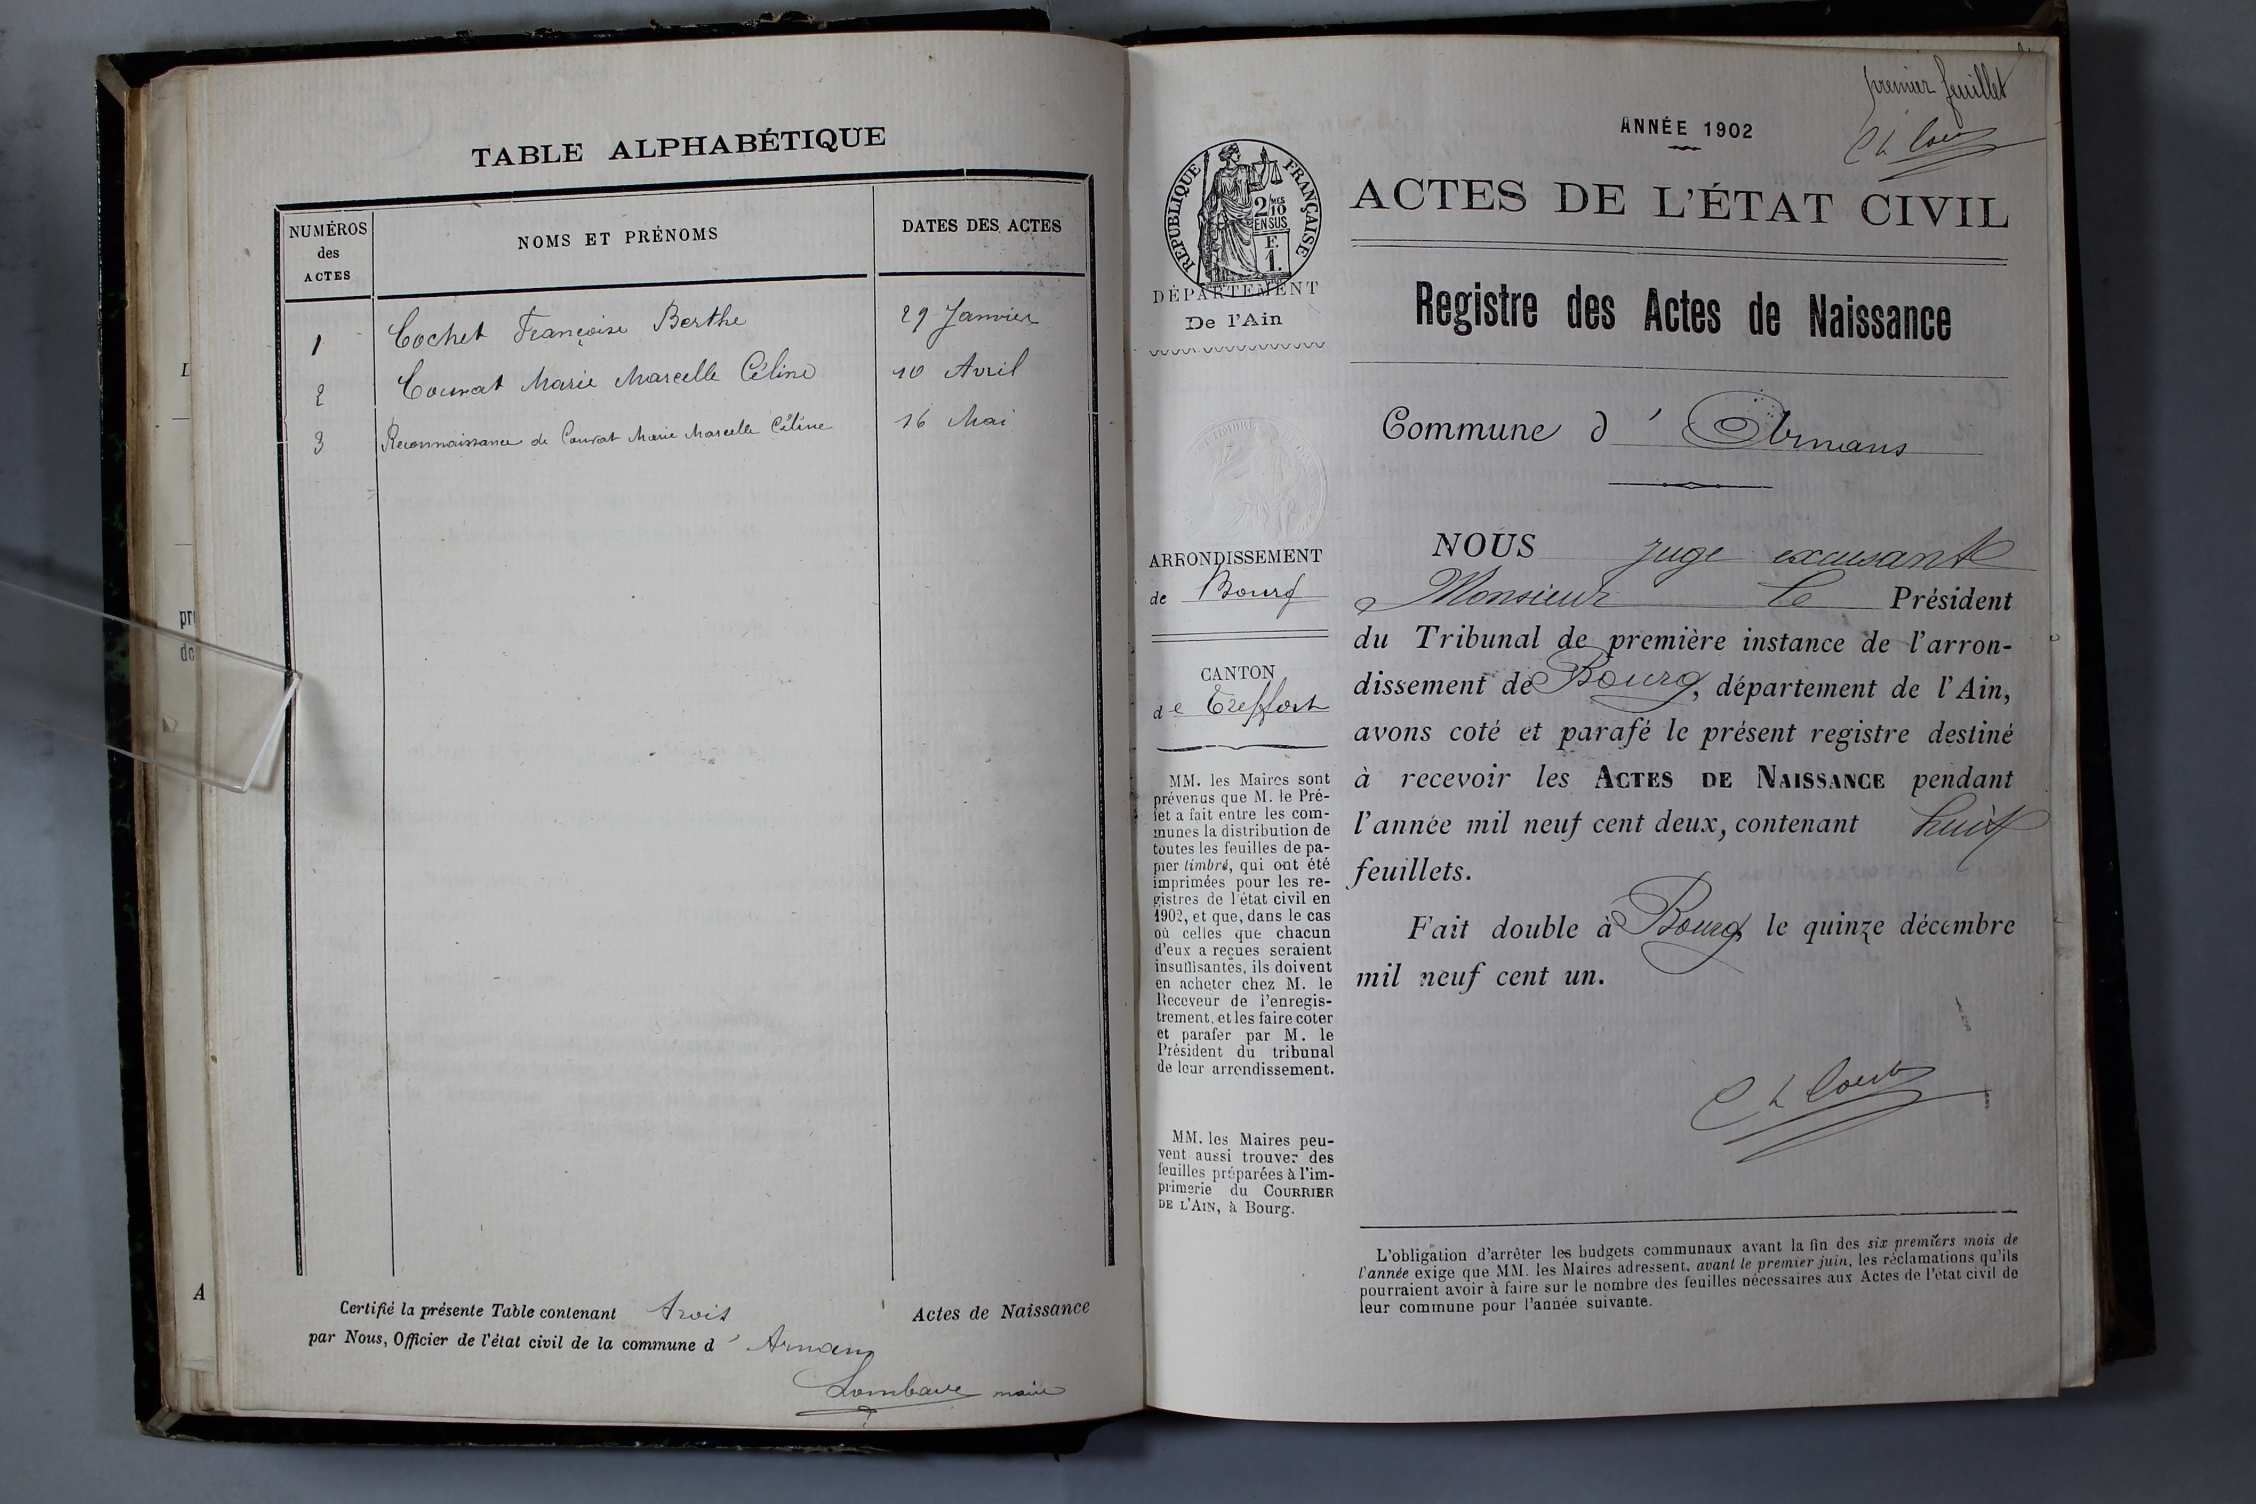 TABLE ALPHABÉTIQUE
NUMÉROS
des
ACTES
NOMS ET PRÉNOMS
DATES DES ACTES
1 Cochet Françoise Berthe 29 Janvier
2 Courat Marie Marcelle Céline 10 Avril
3 Reconnaissance de Courat Marie Marcelle Céline 16 Mai
Certifié la présente Table contenant trois Actes de Naissance
par Nous, Officier de l'état civil de la commune d' Arnans
maire
premier feuillet
ANNÉE 1902
RÉPUBLIQUE FRANÇAISE
2/10 MES
EN SUS
F.
1.
DÉPARTEMENT
De l'Ain
ARRONDISSEMENT
de Bourg
CANTON
de Treffort
MM. les Maires sont
prévenus que M. le Pré-
fet a fait entre les com-
munes la distribution de
toutes les feuilles de pa-
pier timbré, qui ont été
imprimées pour les re-
gistres de l'état civil en
1902, et que, dans le cas
où celles que chacun
d'eux a reçues seraient
insuffisantes, ils doivent
en acheter chez M. le
Receveur de l'enregis-
trement, et les faire coter
et parafer par M. le
Président du tribunal
de leur arrondissement.
MM. les Maires peu-
vent aussi trouver des
feuilles préparées à l'im-
primerie du COURRIER
DE L'AIN, à Bourg.
ACTES DE L'ÉTAT CIVIL
Registre des Actes de Naissance
Commune d' Arnans
NOUS juge excusant
Monsieur le Président
du Tribunal de première instance de l'arron-
dissement de Bourg, département de l'Ain,
avons coté et parafé le présent registre destiné
à recevoir les ACTES DE NAISSANCE pendant
l'année mil neuf cent deux, contenant huit
feuillets.
Fait double à Bourg le quinze décembre
mil neuf cent un.
L'obligation d'arrêter les budgets communaux avant la fin des six premiers mois de
l'année exige que MM. les Maires adressent, avant le premier juin, les réclamations qu'ils
pourraient avoir à faire sur le nombre des feuilles nécessaires aux Actes de l'état civil de
leur commune pour l'année suivante.